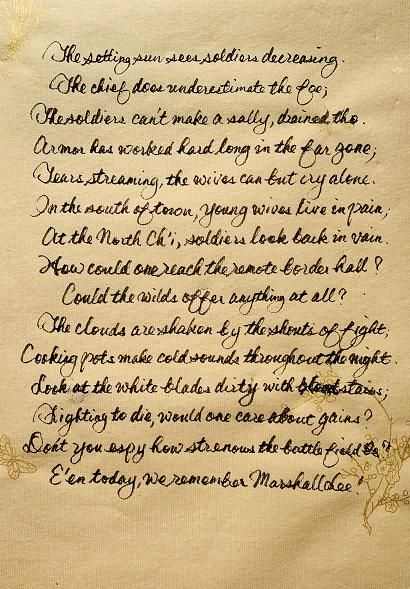 The setting sun sees soldiers decreasing.
The chief does underestimate the foe;
The soldiers can't make a sally, drained tho.
Armor has worked hard long in the far zone;
Tears streaming, the wives can but cry alone.
In the south of town, young wives live in pain;
At the North Ch'i, soldiers look back in vain.
How could one reach the remote border hall?
Could the wilds offer anything at all?
The clouds are shaken by the shouts of fight;
Cooking pots make cold sounds throughout the night.
Look at the white blades dirty with blood stains;
Fighting to die, would one care about gains?
Don't you espy how strenous the battlefield be?
E'en today, we remember Marshall Lee!